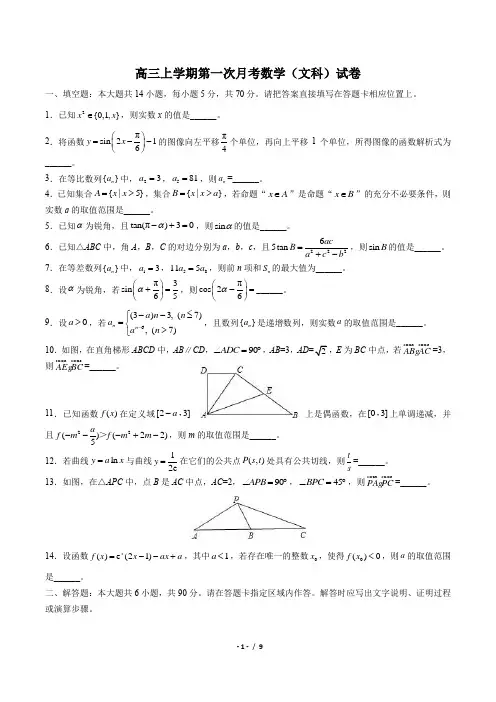 高三上学期第一次月考数学(文科)试卷
一、填空题:本大题共14小题,每小题5分,共70分。请把答案直接填写在答题卡相应位置上。
1.已知 x²∈{0,1,x},则实数 x 的值是______。
2.将函数 y=sin(2x-π/6)-1 的图像向左平移 π/4 个单位,再向上平移 1 个单位,所得图像的函数解析式为
______。
3.在等比数列{aₙ}中,a₂=3,a₅=81,则aₙ=______。
4.已知集合 A={x|x>5},集合 B={x|x>a},若命题“x∈A”是命题“x∈B”的充分不必要条件,则
实数 a 的取值范围是______。
5.已知α为锐角,且 tan(π-α)+3=0,则 sinα 的值是______。
6.已知△ABC 中,角 A,B,C 的对边分别为 a,b,c,且 5tan B=6ac/(a²+c²-b²),则 sin B 的值是______。
7.在等差数列{aₙ}中,a₁=3,11a₅=5a₈,则前 n 项和 Sₙ 的最大值为______。
8.设α为锐角,若 sin(α+π/6)=3/5,则 cos(2α-π/6)=______。
9.设 a>0,若 aₙ={(3-a)n-3, (n≤7) aⁿ⁻⁶, (n>7),且数列{aₙ}是递增数列,则实数 a 的取值范围是______。
10. 如图,在直角梯形 ABCD 中,AB∥CD,∠ADC=90°,AB=3,AD=√2,E 为 BC 中点,若 AB·AC=3,
则 AE·BC=______。
D C E A B
11.已知函数 f(x) 在定义域[2-a,3]上是偶函数,在[0,3]上单调递减,并
且 f(-m²-a/5)>f(-m²+2m-2),则 m 的取值范围是______。
12.若曲线 y=a ln x 与曲线 y=1/2e 在它们的公共点 P(s,t) 处具有公共切线,则 t/s=______。
13.如图,在△APC 中,点 B 是 AC 中点,AC=2,∠APB=90°,∠BPC=45°,则 PA·PC=______。
P A B C
14.设函数 f(x)=eˣ(2x-1)-ax+a,其中 a<1,若存在唯一的整数 x₀,使得 f(x₀)<0,则 a 的取值范围
是______。
二、解答题:本大题共 6 小题,共 90 分。请在答题卡指定区域内作答。解答时应写出文字说明、证明过程
或演算步骤。
- 1 - / 9